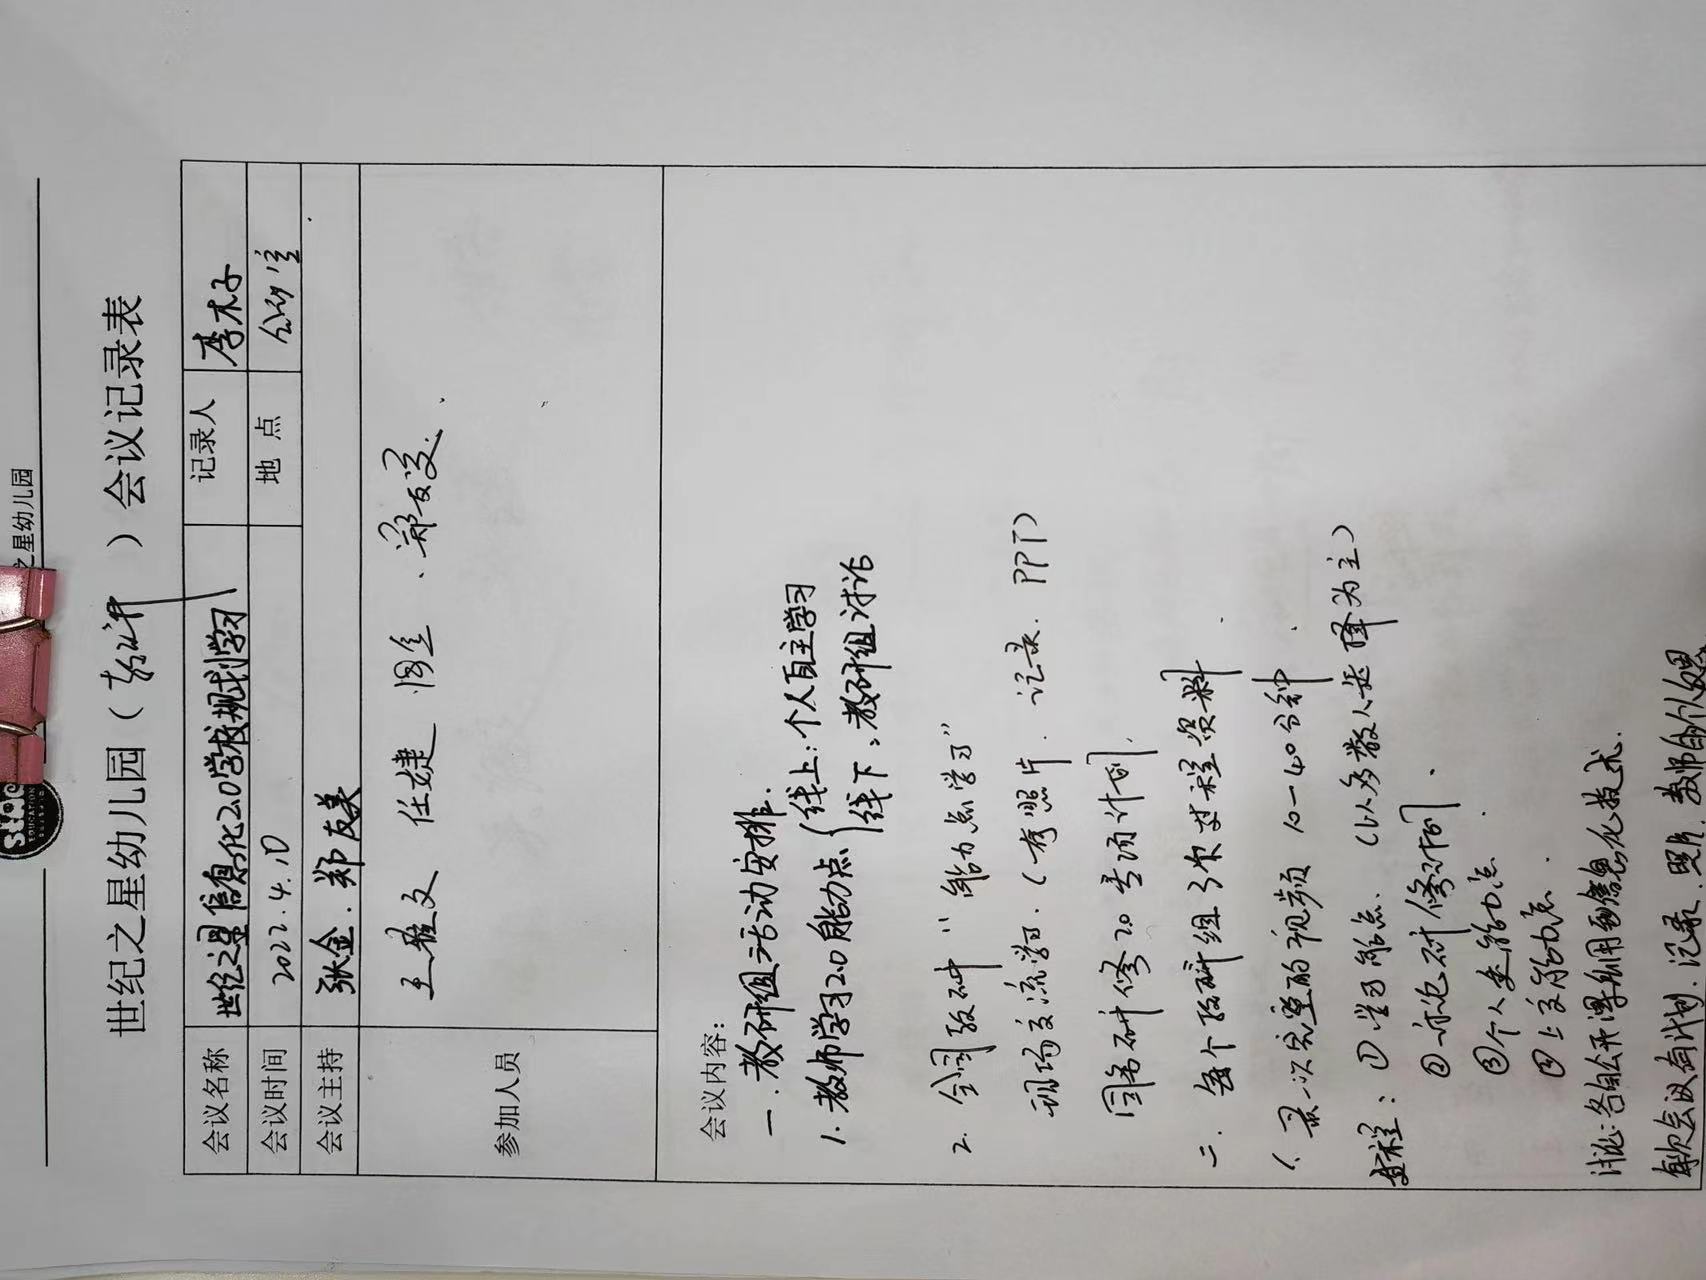 之星幼儿园
世纪之星幼儿园（教研）会议记录表
会议名称 世纪之星信息化2.0学校规划学习 记录人 李木子
会议时间 2022.4.10 地点 会议室
会议主持 张金.郑友美
参加人员 王雅文 任婕
会议内容：
一.教研组活动安排.
1.教师学习2.0能力点 线上：个人自主学习
线下、教研组讨论
2. 全园教研“能力点学习”
现场交流学习.（有照片.记录.PPT）
园务研修2.0专项计划.
二. 每个教研组3次过程资料
1. 录一次完整的视频 10—40分钟
过程：①学习能点.（以多数人选择为主）
②讨论研修计划
③个人选能力点
④上交能力点.
讨论：各自公开课运用到信息化技术.
每次会议有计划.记录.照片.教师个人反思